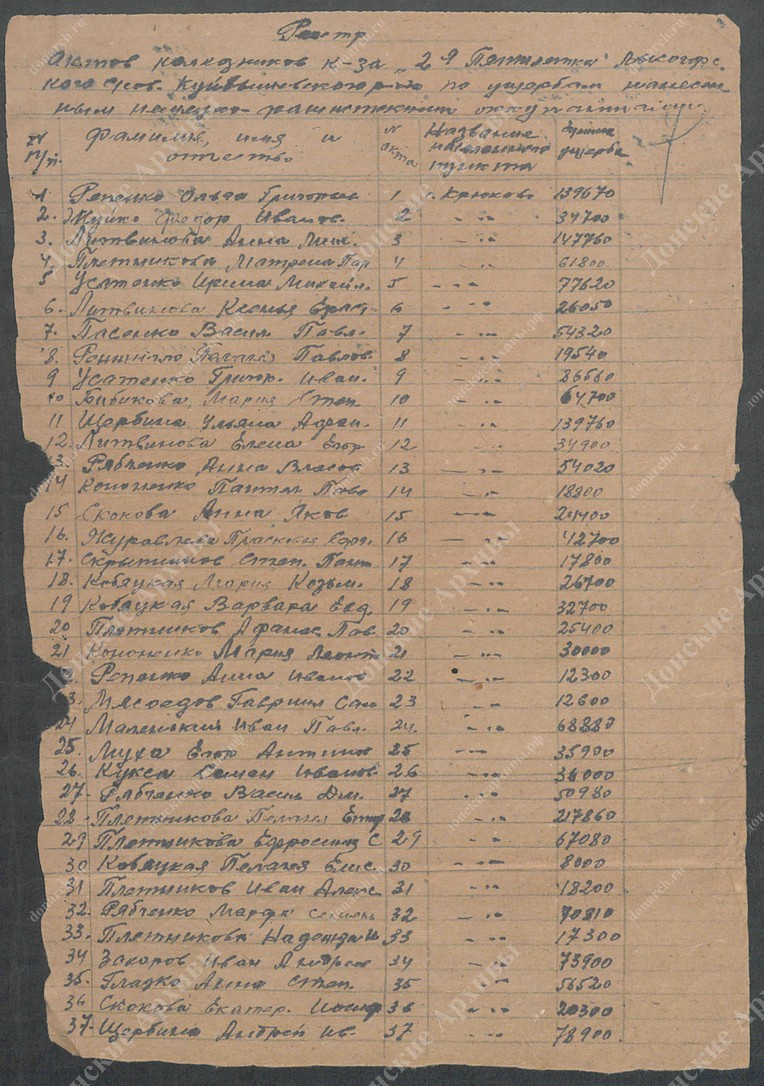 Реестр
Актов колхозников к-за "2я Пятилетка" Лысогорс
кого с/сов. Куйбышевского р-на по ущербам нанесен
ным немецко-фашистскими оккупантами
№ п/п. фамилие, имя и отчество № акта Название населенного пункта Сумма ущерба
1 Репенко Ольга Григорьев 1 с. Крюково 139670
2. Жушко Федор Иванов. 2 – " – 34700
3. Литвинова Анна Мих. 3 – " – 147760
4. Плетникова Матрена Пар 4 – " – 61800
5 Усатенко Ирина Михайл. 5 – " – 77620
6. Литвинова Ксенья 6 – " – 26050
7. Пасенко Васил Павл. 7 – " – 54320
8. Пелагея Павлов 8 – " – 19540
9 Усатенко Григор. Иван. 9 – " – 86560
10 Бибикова Мария Степ. 10 – " – 64700
11 Щербина Ульяна Афан. 11 – " – 139760
12. Литвинова Елена Егор 12 – " – 34900
13. Рябченко Анна Власов 13 – " – 54020
14 Кононенко Пантел Павл 14 – " – 18800
15 Скокова Анна Яков 15 – " – 24400
16. Журавлева Прасковья 16 – " – 42700
17. Скрытников Степ. Пант. 17 – " – 17800
18. Кобяцкая Мария Козьм. 18 – " – 26700
19 Кобяцкая Варвара Евд. 19 – " – 32700
20 Плетников Афанас. Пав. 20 – " – 25400
21 Кононенко Мария Леонт 21 – " – 30000
2. Репенко Анна Иванов 22 – " – 12300
3. Мясоедов Гавриил Сам 23 – " – 12600
24 Маленький Иван Павл. 24. – " – 68880
25. Муха Егор Антонов 25 – " – 35900
26. Кукса Семен Иванов. 26 – " – 34000
27. Рябченко Васил Дм. 27 – " – 50980
28 Плетникова Пелагея 28 – " – 217860
29 Плетникова Ефросинья С 29 – " – 67080
30 Кобяцкая Пелагея Елис. 30 – " – 8000
31 Плетников Иван Алекс 31 – " – 18200
32. Рябченко Марфа Семен 32 – " – 70810
33. Плетникова Надежда И 33 – " – 17300
34 Захаров Иван Андреев 34 – " – 73900
35. Гладко Анна Степ. 35 – " – 56520
36 Скокова Екатер. Иосиф 36 – " – 20300
37. Щербина Андрей Ив. 37 – " – 78900.
Донские Архивы
donarch.ru